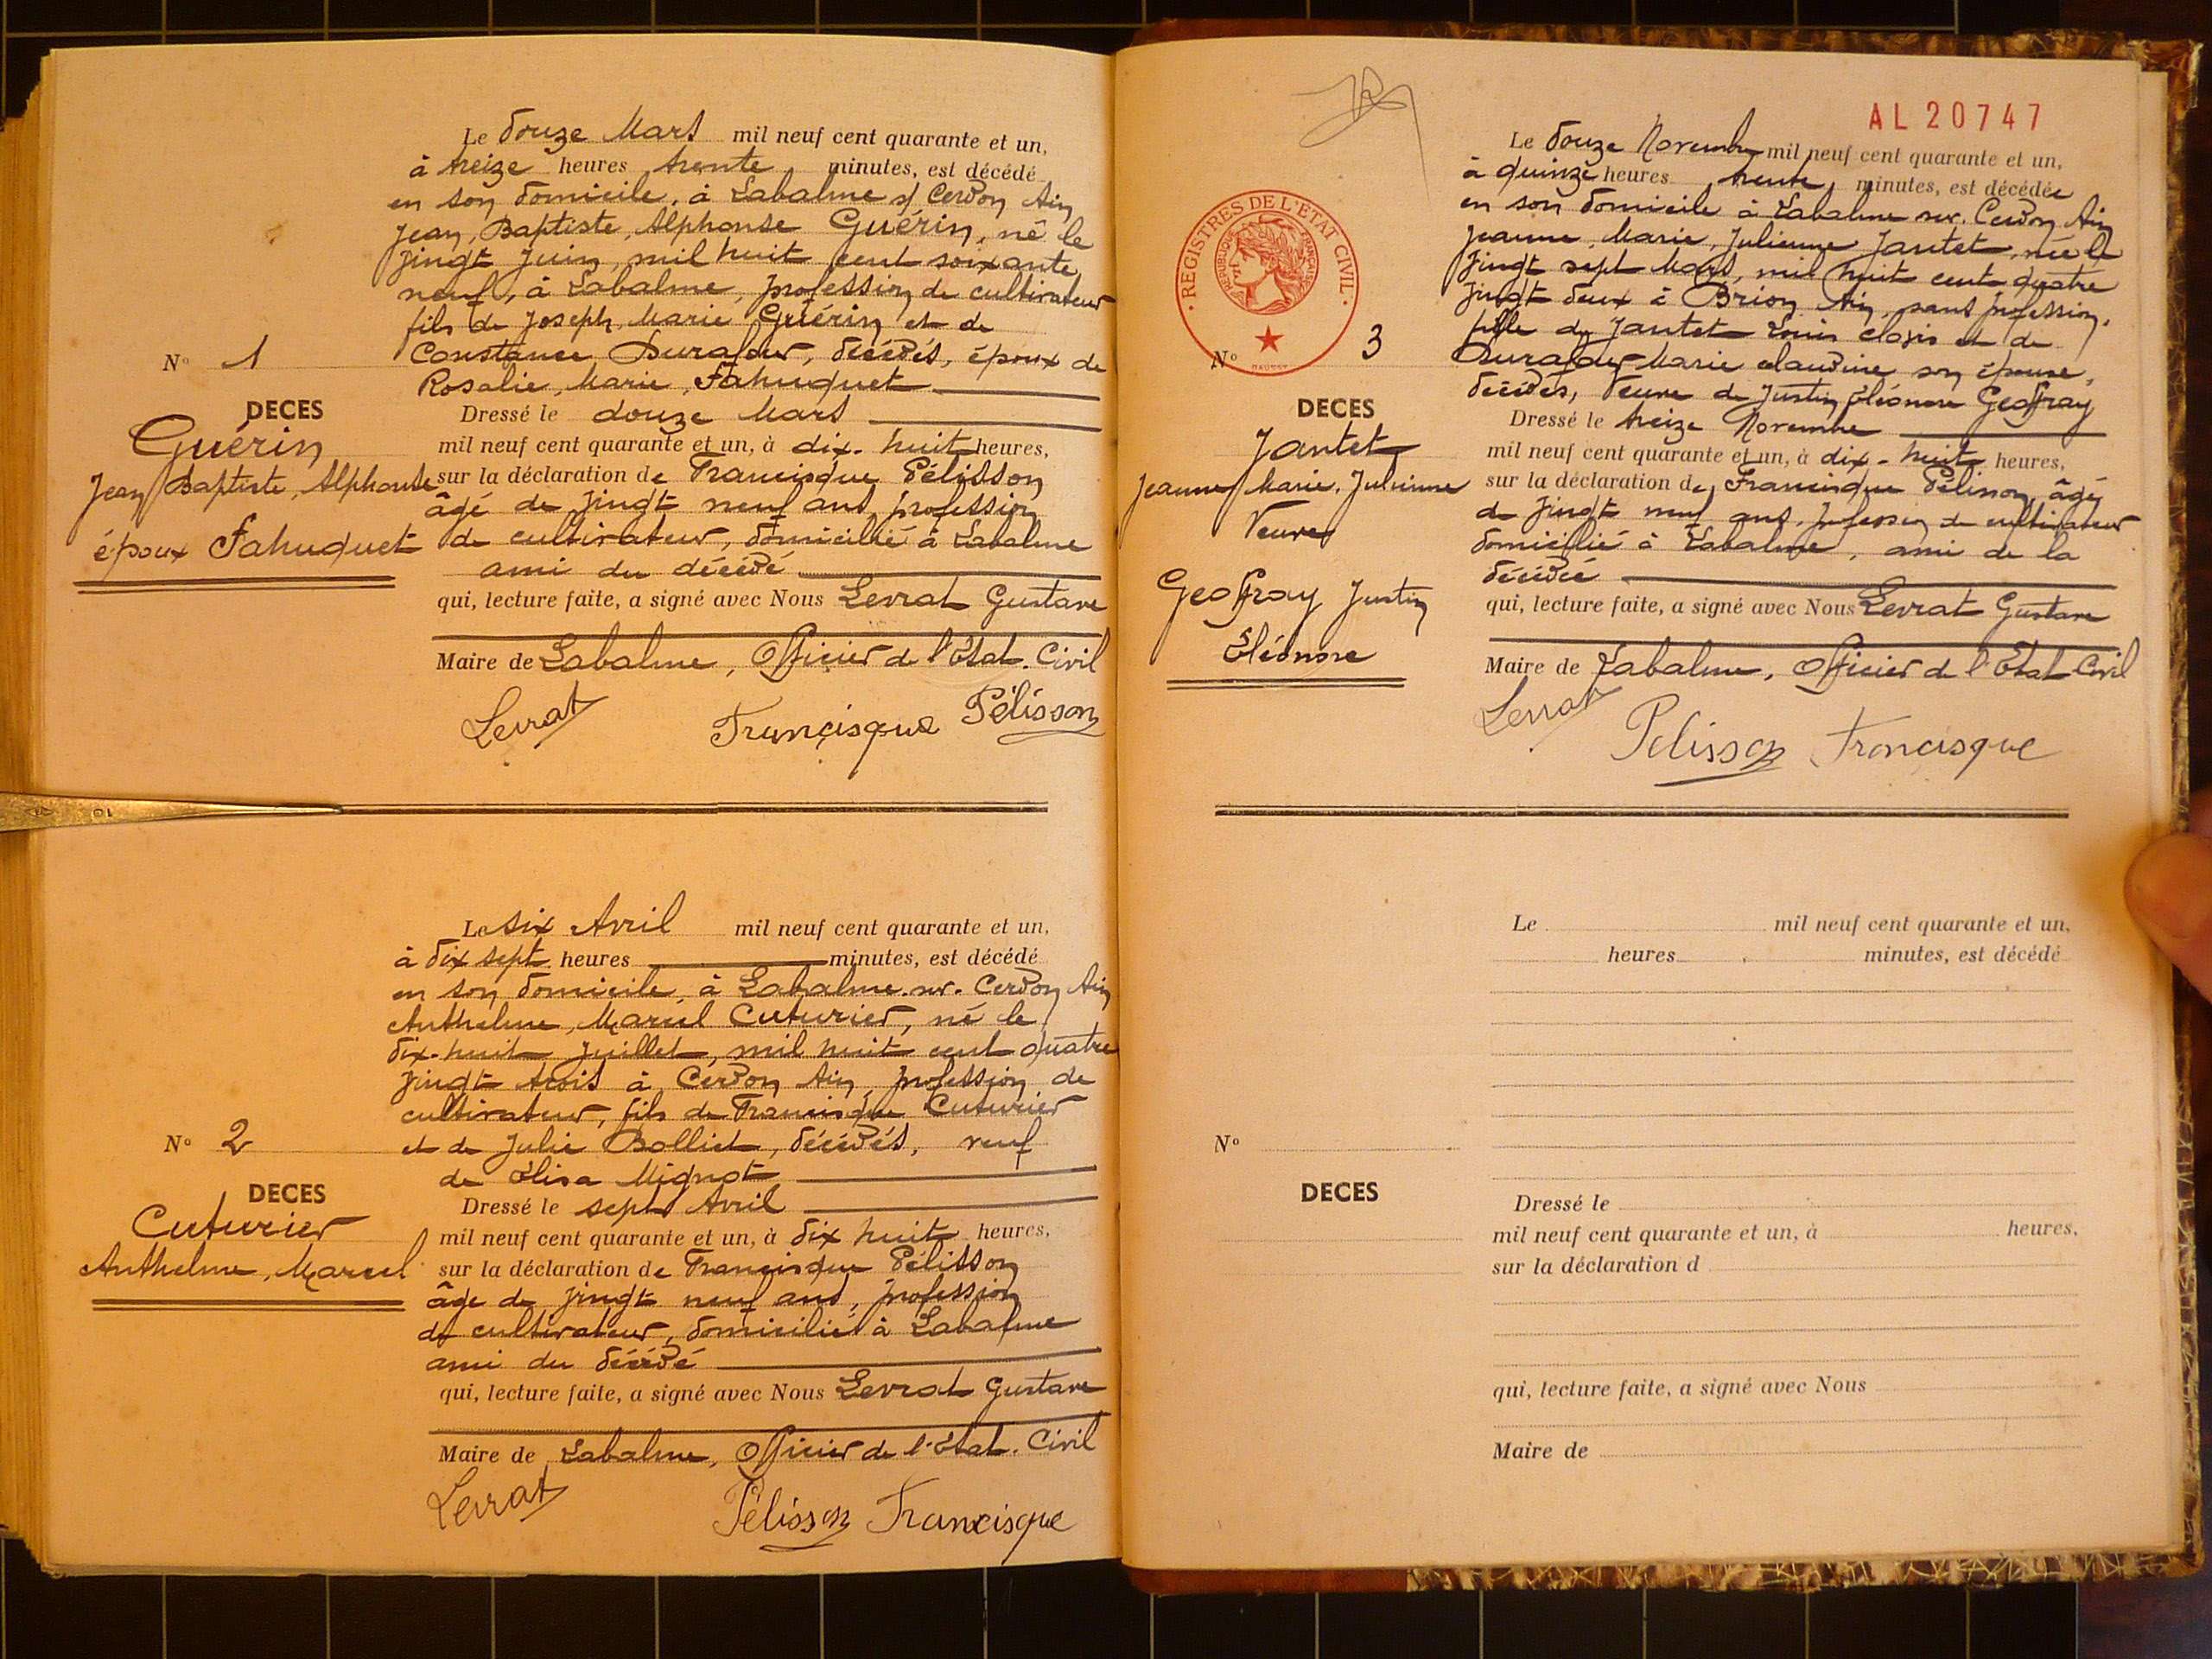 Le douze Mars mil neuf cent quarante et un,
à treize heures trente minutes, est décédé
en son domicile, à Labalme s/ Cerdon Ain
Jean, Baptiste, Alphonse Guérin, né le
vingt Juin, mil huit cent soixante
neuf, à Labalme, profession de cultivateur
fils de Joseph, Marie Guérin et de
Constance Durafour, décédés, époux de
Rosalie, Marie, Fahuquet
N° 1
DECES
Guérin
Jean Baptiste, Alphonse
époux Fahuquet
Dressé le douze Mars
mil neuf cent quarante et un, à dix-huit heures,
sur la déclaration de Francisque Pélisson
âgé de vingt neuf ans, profession
de cultivateur, domicilié à Labalme
ami du décédé
qui, lecture faite, a signé avec Nous Levrat Gustave
Maire de Labalme, Officier de l'Etat-Civil
Levrat Francisque Pélisson
Le six Avril mil neuf cent quarante et un,
à dix sept heures minutes, est décédé
en son domicile, à Labalme-sur-Cerdon Ain
Anthelme, Marcel Cuturier, né le
dix-huit Juillet, mil huit cent quatre
vingt trois à Cerdon Ain, profession de
cultivateur, fils de Francisque Cuturier
et de Julie Bolliet, décédés, veuf
de Elisa Mignot
N° 2
DECES
Cuturier
Anthelme, Marcel
Dressé le sept Avril
mil neuf cent quarante et un, à dix huit heures,
sur la déclaration de Francisque Pélisson
âge de vingt neuf ans, profession
de cultivateur, domicilié à Labalme
ami du décédé
qui, lecture faite, a signé avec Nous Levrat Gustave
Maire de Labalme, Officier de l'Etat-Civil
Levrat Pélisson Francisque
AL 20747
REGISTRES DE L'ETAT CIVIL
REPUBLIQUE FRANÇAISE
Le douze Novembre mil neuf cent quarante et un,
à quinze heures trente minutes, est décédée
en son domicile à Labalme sur-Cerdon Ain
Jeanne, Marie, Julienne Jantet, née le
vingt sept Mars, mil huit cent quatre
vingt deux à Brion Ain, sans profession,
fille de Jantet Louis Clovis et de
Durafour Marie Claudine son épouse,
décédés, Veuve de Justin Eléonore Geoffray
N° 3
DECES
Jantet
Jeanne Marie, Julienne
Veuve
Geoffray Justin
Eléonore
Dressé le treize Novembre
mil neuf cent quarante et un, à dix-huit heures,
sur la déclaration de Francisque Pélisson, âgé
de vingt neuf ans, profession de cultivateur
domicilié à Labalme, ami de la
décédée
qui, lecture faite, a signé avec Nous Levrat Gustave
Maire de Labalme, Officier de l'Etat-Civil
Levrat Pelisson Francisque
Le mil neuf cent quarante et un,
heures minutes, est décédé
N°
DECES
Dressé le
mil neuf cent quarante et un, à heures,
sur la déclaration d
qui, lecture faite, a signé avec Nous
Maire de